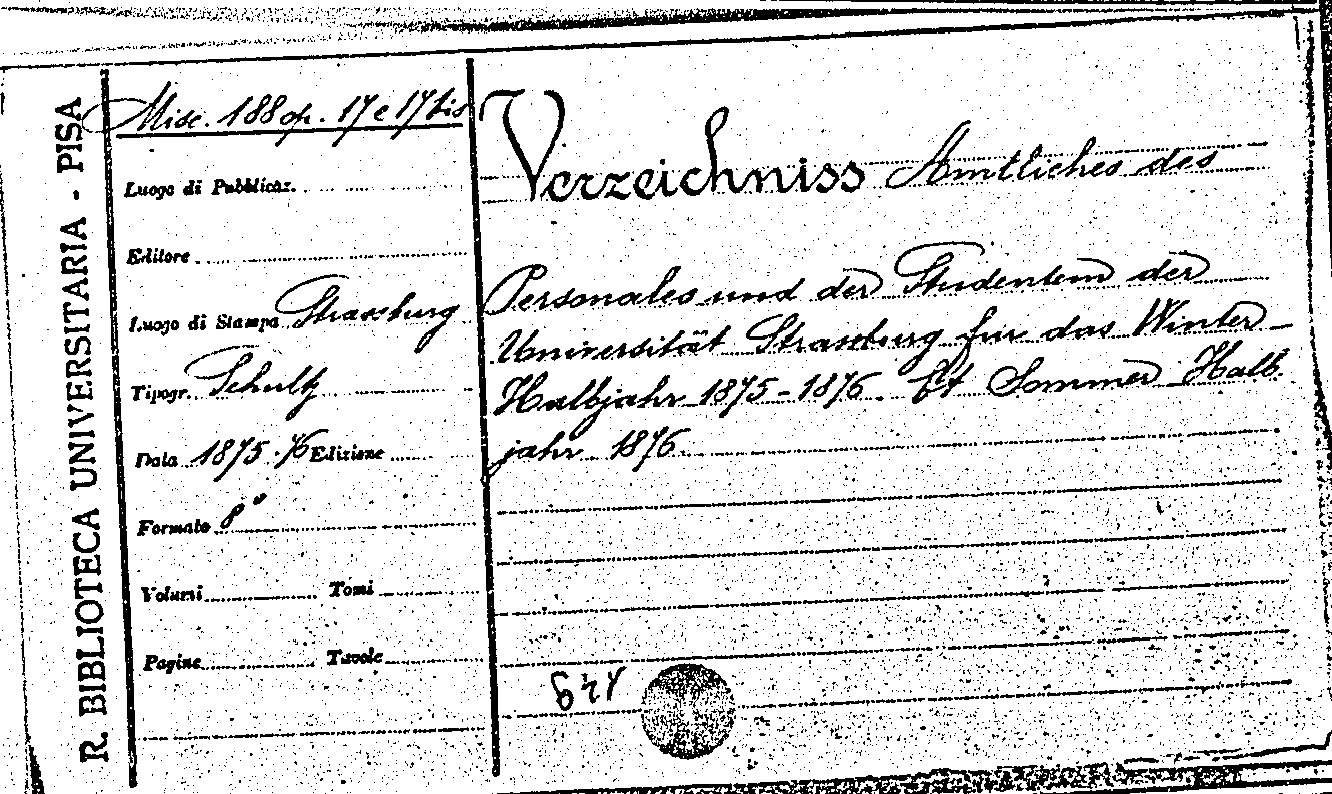 R. BIBLIOTECA UNIVERSITARIA - PISA
Misc. 188 op. 17 e 17 bis
Luogo di Pubblicaz.
Editore
Luogo di Stampa Strassburg
Tipogr. Schultz
Data 1875-76 Edizione
Formato 8°
Volumi Tomi
Pagine Tavole
Verzeichniss Amtliches des
Personales und der Studenten der
Universität Strassburg für das Winter-
Halbjahr 1875-1876. Et Sommer Halb
jahr 1876.